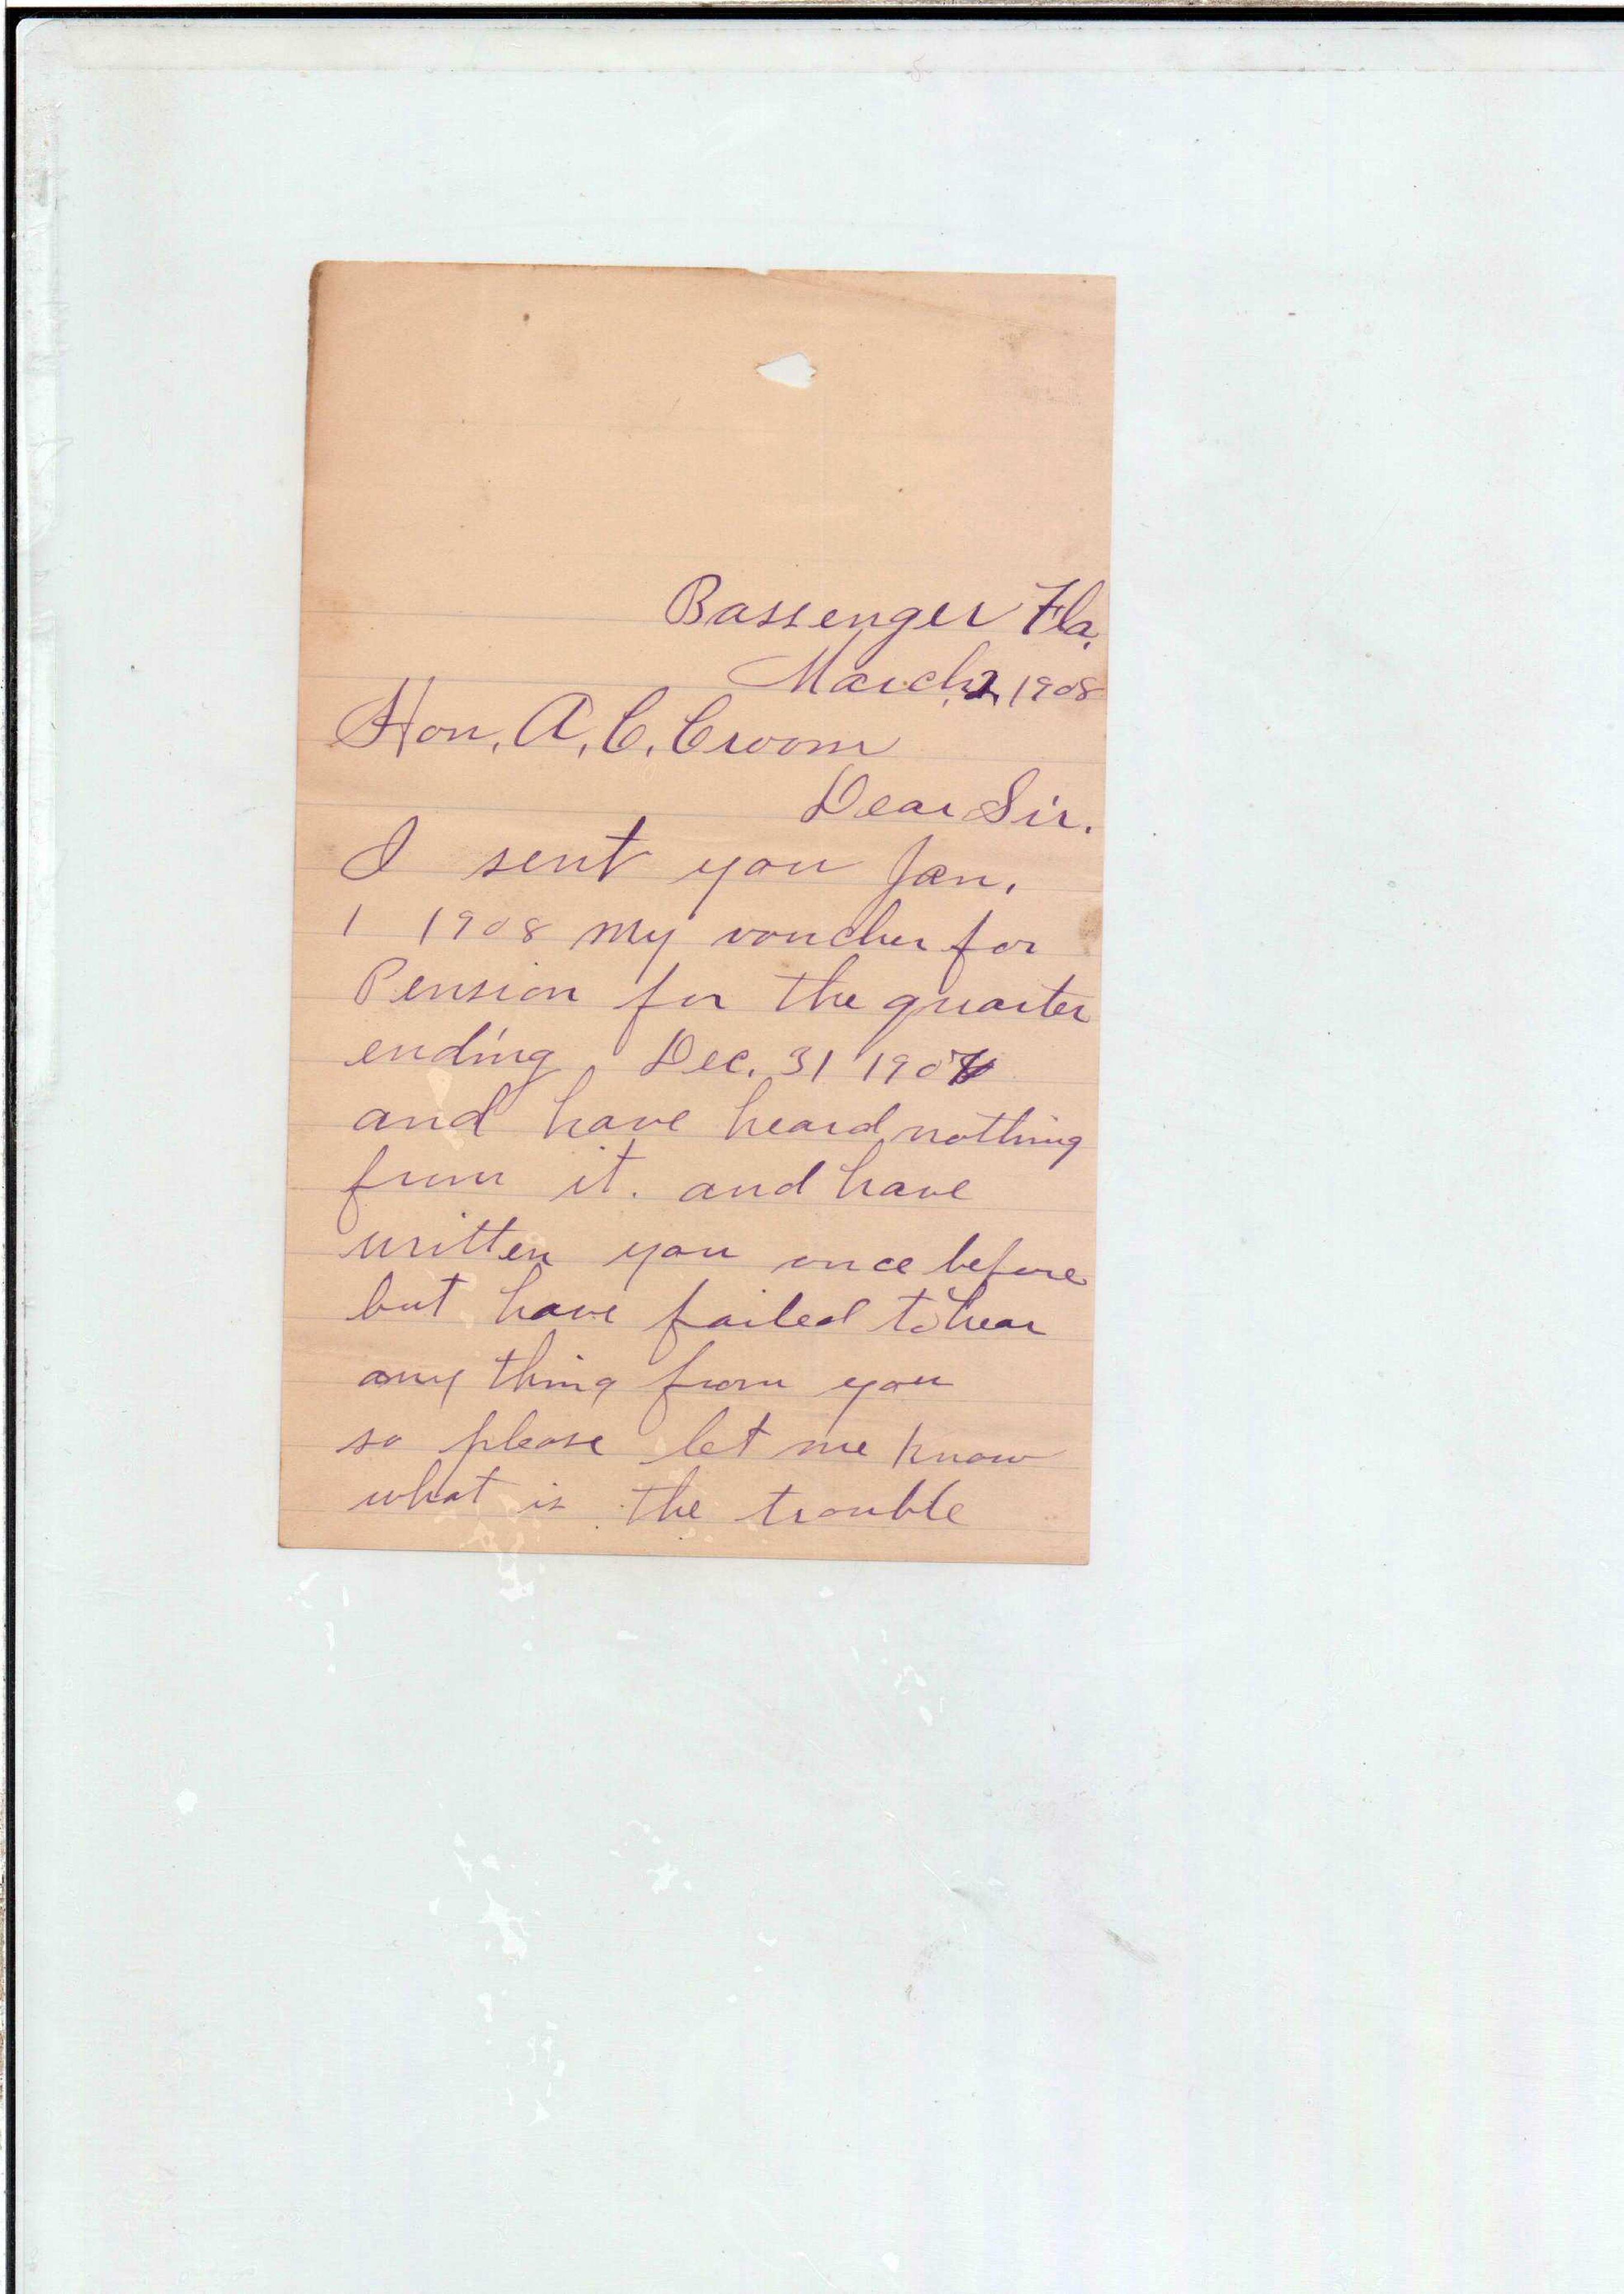 Bassenger Fla.
March 2, 1908
Hon. A. C. Croom
Dear Sir.
I sent you Jan.
1 1908 my voucher for
Pension for the quarter
ending Dec. 31 1907
and have heard nothing
from it. and have
written you once before
but have failed to hear
any thing from you
so please let me know
what is the trouble